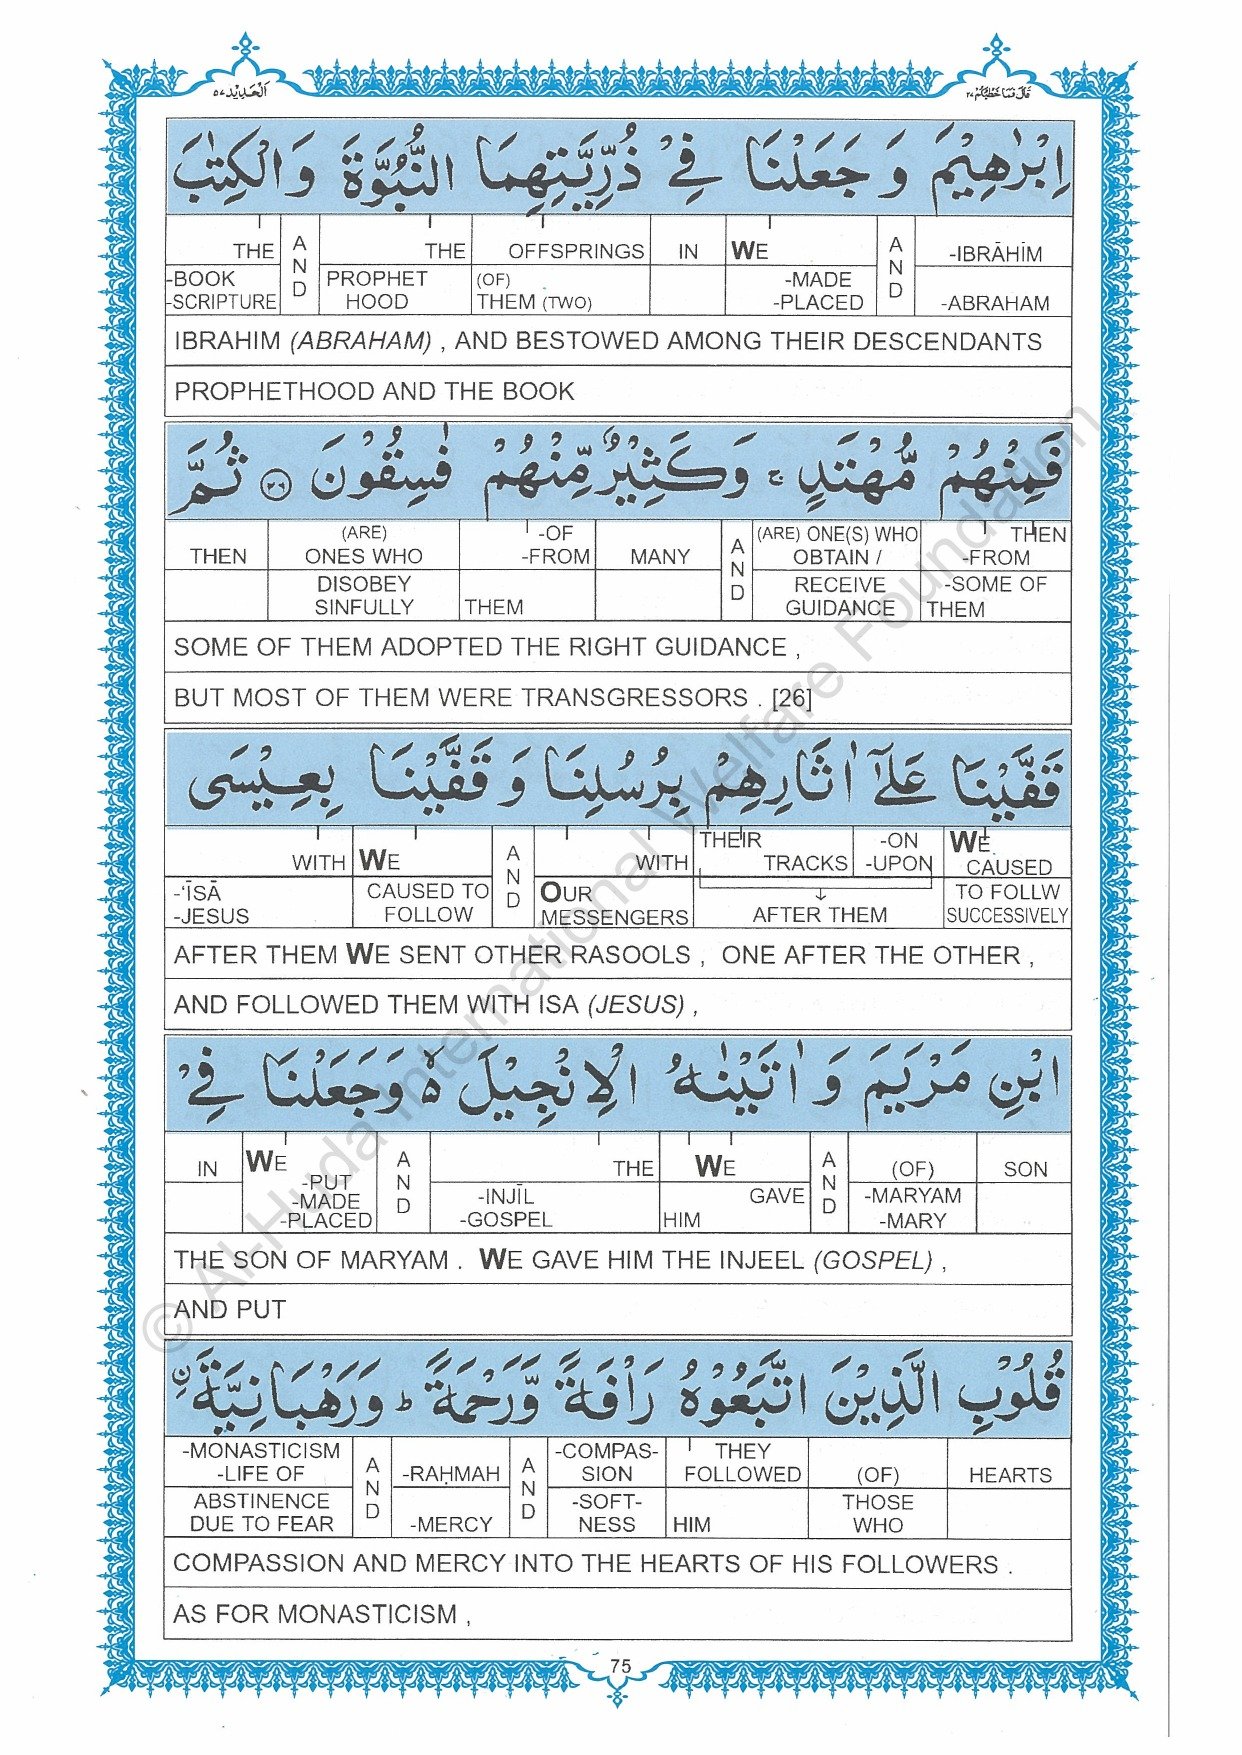 اَلْحَدِيْد ٥٧
قَالَ فَمَا خَطْبُكُمْ ٢٧
اِبْرٰهِيْمَ وَ جَعَلْنَا فِيْ ذُرِّيَّتِهِمَا النُّبُوَّةَ وَ الْكِتٰبَ
THE AND THE OFFSPRINGS IN WE AND -IBRĀHĪM
-BOOK PROPHET (OF) -MADE
-SCRIPTURE HOOD THEM (TWO) -PLACED -ABRAHAM
IBRAHIM (ABRAHAM) , AND BESTOWED AMONG THEIR DESCENDANTS
PROPHETHOOD AND THE BOOK
فَمِنْهُمْ مُّهْتَدٍ ۚ وَ كَثِيْرٌ مِّنْهُمْ فٰسِقُوْنَ ٢٦ ثُمَّ
(ARE) -OF AND (ARE) ONE(S) WHO THEN
THEN ONES WHO -FROM MANY OBTAIN / -FROM
DISOBEY RECEIVE -SOME OF
SINFULLY THEM GUIDANCE THEM
SOME OF THEM ADOPTED THE RIGHT GUIDANCE ,
BUT MOST OF THEM WERE TRANSGRESSORS . [26]
قَفَّيْنَا عَلٰٓى اٰثَارِهِمْ بِرُسُلِنَا وَ قَفَّيْنَا بِعِيْسَى
THEIR -ON WE
WITH WE AND WITH TRACKS -UPON CAUSED
-‘ĪSĀ CAUSED TO OUR TO FOLLW
-JESUS FOLLOW MESSENGERS AFTER THEM SUCCESSIVELY
AFTER THEM WE SENT OTHER RASOOLS , ONE AFTER THE OTHER ,
AND FOLLOWED THEM WITH ISA (JESUS) ,
ابْنِ مَرْيَمَ وَ اٰتَيْنٰهُ الْاِنْجِيْلَ ۙ۬ وَ جَعَلْنَا فِيْ
IN WE AND THE WE AND (OF) SON
-PUT
-MADE -INJĪL GAVE -MARYAM
-PLACED -GOSPEL HIM -MARY
THE SON OF MARYAM . WE GAVE HIM THE INJEEL (GOSPEL) ,
AND PUT
قُلُوْبِ الَّذِيْنَ اتَّبَعُوْهُ رَاْفَةً وَّ رَحْمَةً ؕ وَ رَهْبَانِيَّةَ ۨ
-MONASTICISM AND AND -COMPAS- THEY
-LIFE OF -RAḤMAH SION FOLLOWED (OF) HEARTS
ABSTINENCE -SOFT- THOSE
DUE TO FEAR -MERCY NESS HIM WHO
COMPASSION AND MERCY INTO THE HEARTS OF HIS FOLLOWERS .
AS FOR MONASTICISM ,
75
© Al-Huda International Welfare Foundation